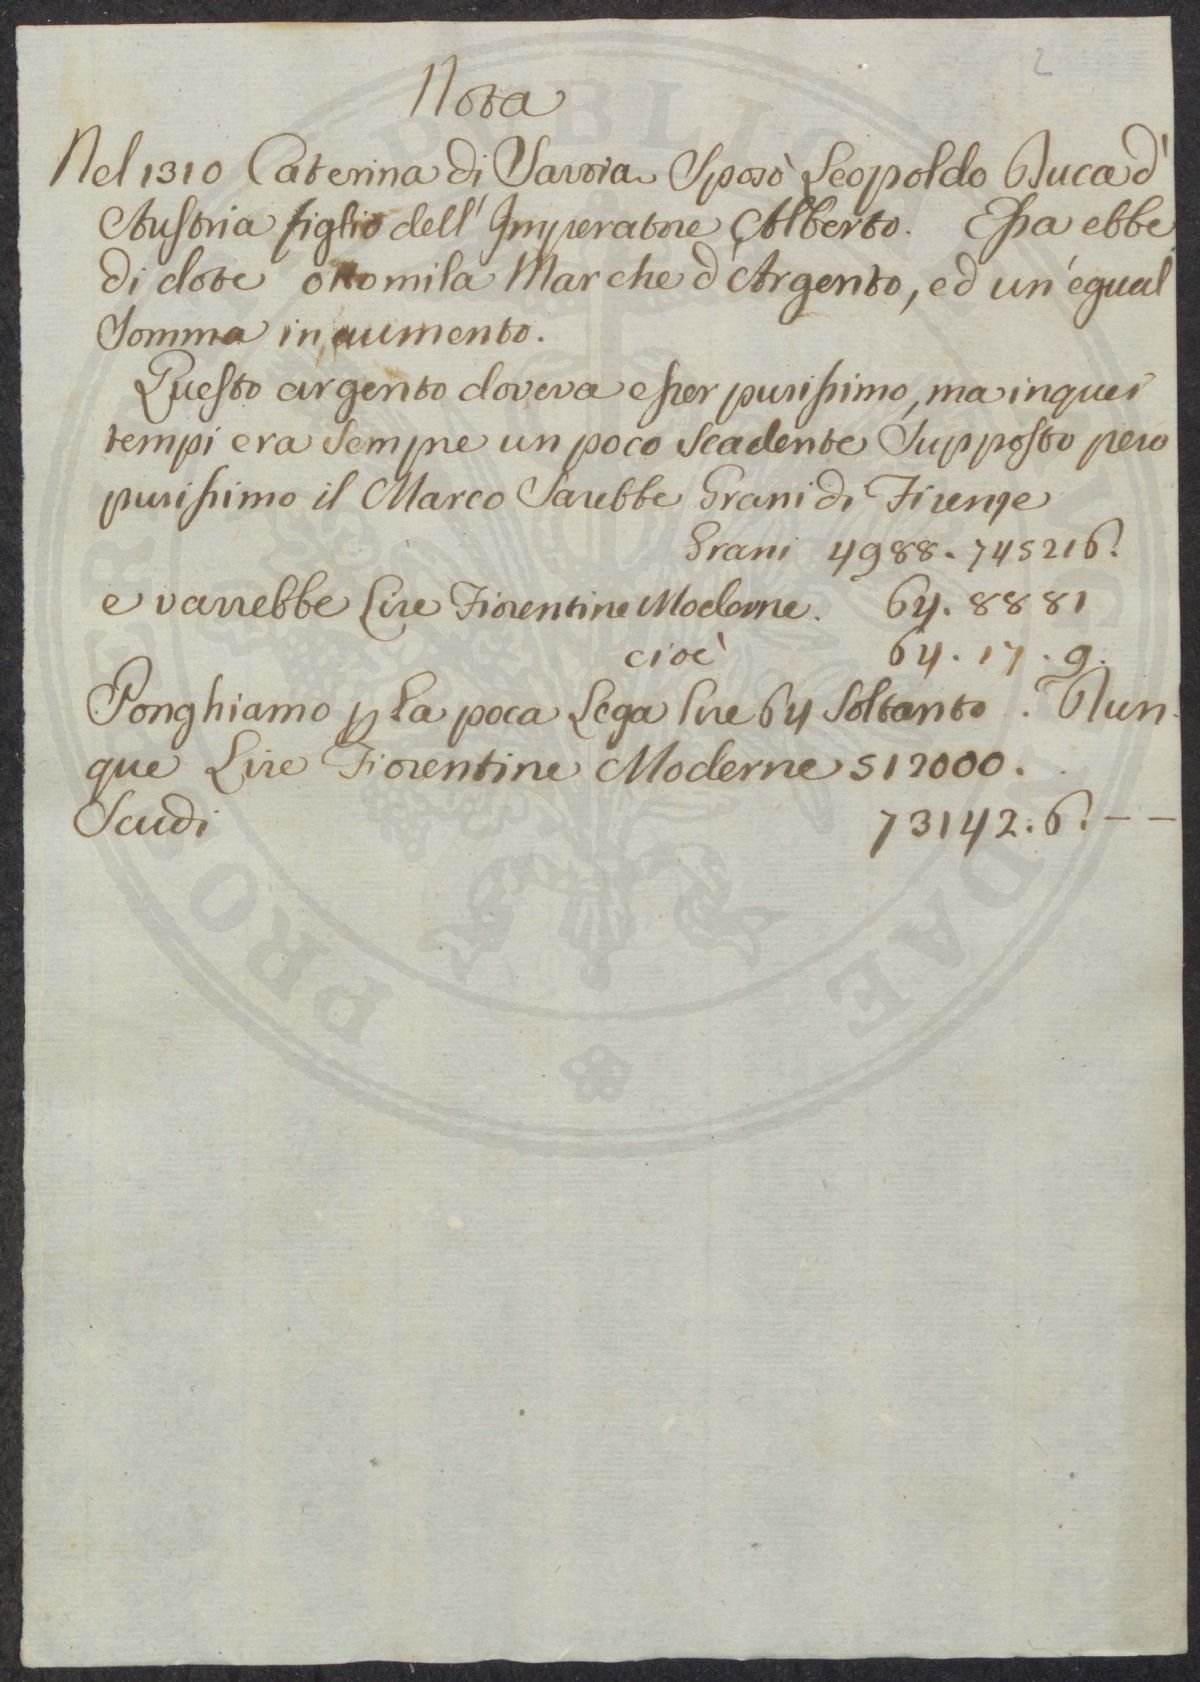 2
Nota
Nel 1310 Caterina di Savoia Sposò Leopoldo Duca d'
Austria figlio dell' Imperatore Alberto. Essa ebbe
di dote ottomila Marche d'Argento, ed un'egual
Somma in aumento.
Questo argento doveva esser purissimo, ma in quei
tempi era sempre un poco scadente Supposto pero
purissimo il Marco Sarebbe Grani di Firenze
Grani 4988.745216.
e varrebbe Lire Fiorentine Moderne. 64.8881
cioè 64.17.9.
Ponghiamo p la poca Lega lire 64 Soltanto. Dun-
que Lire Fiorentine Moderne 512000.
Scudi 73142.6.--